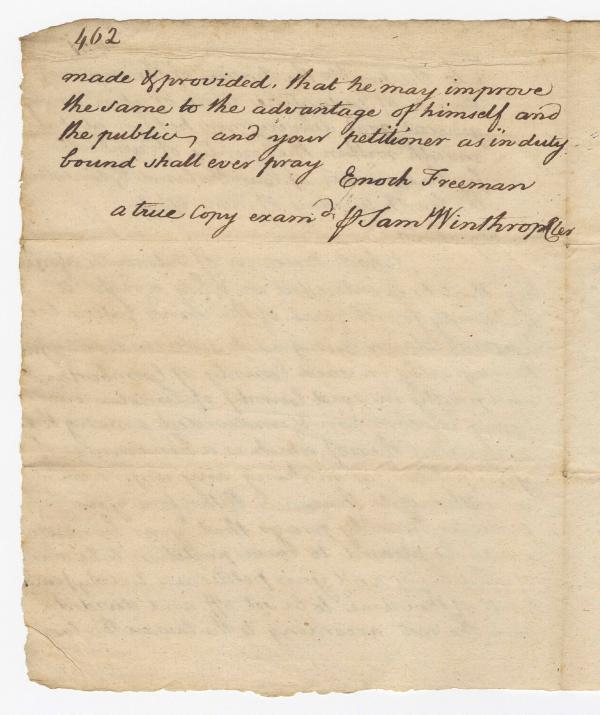 462
made & provided, that he may improve
the same to the advantage of himself and
the public, and your petitioner as in duty
bound shall ever pray
Enoch Freeman
a true Copy exam.d ⅌ Saml Winthrop Cler